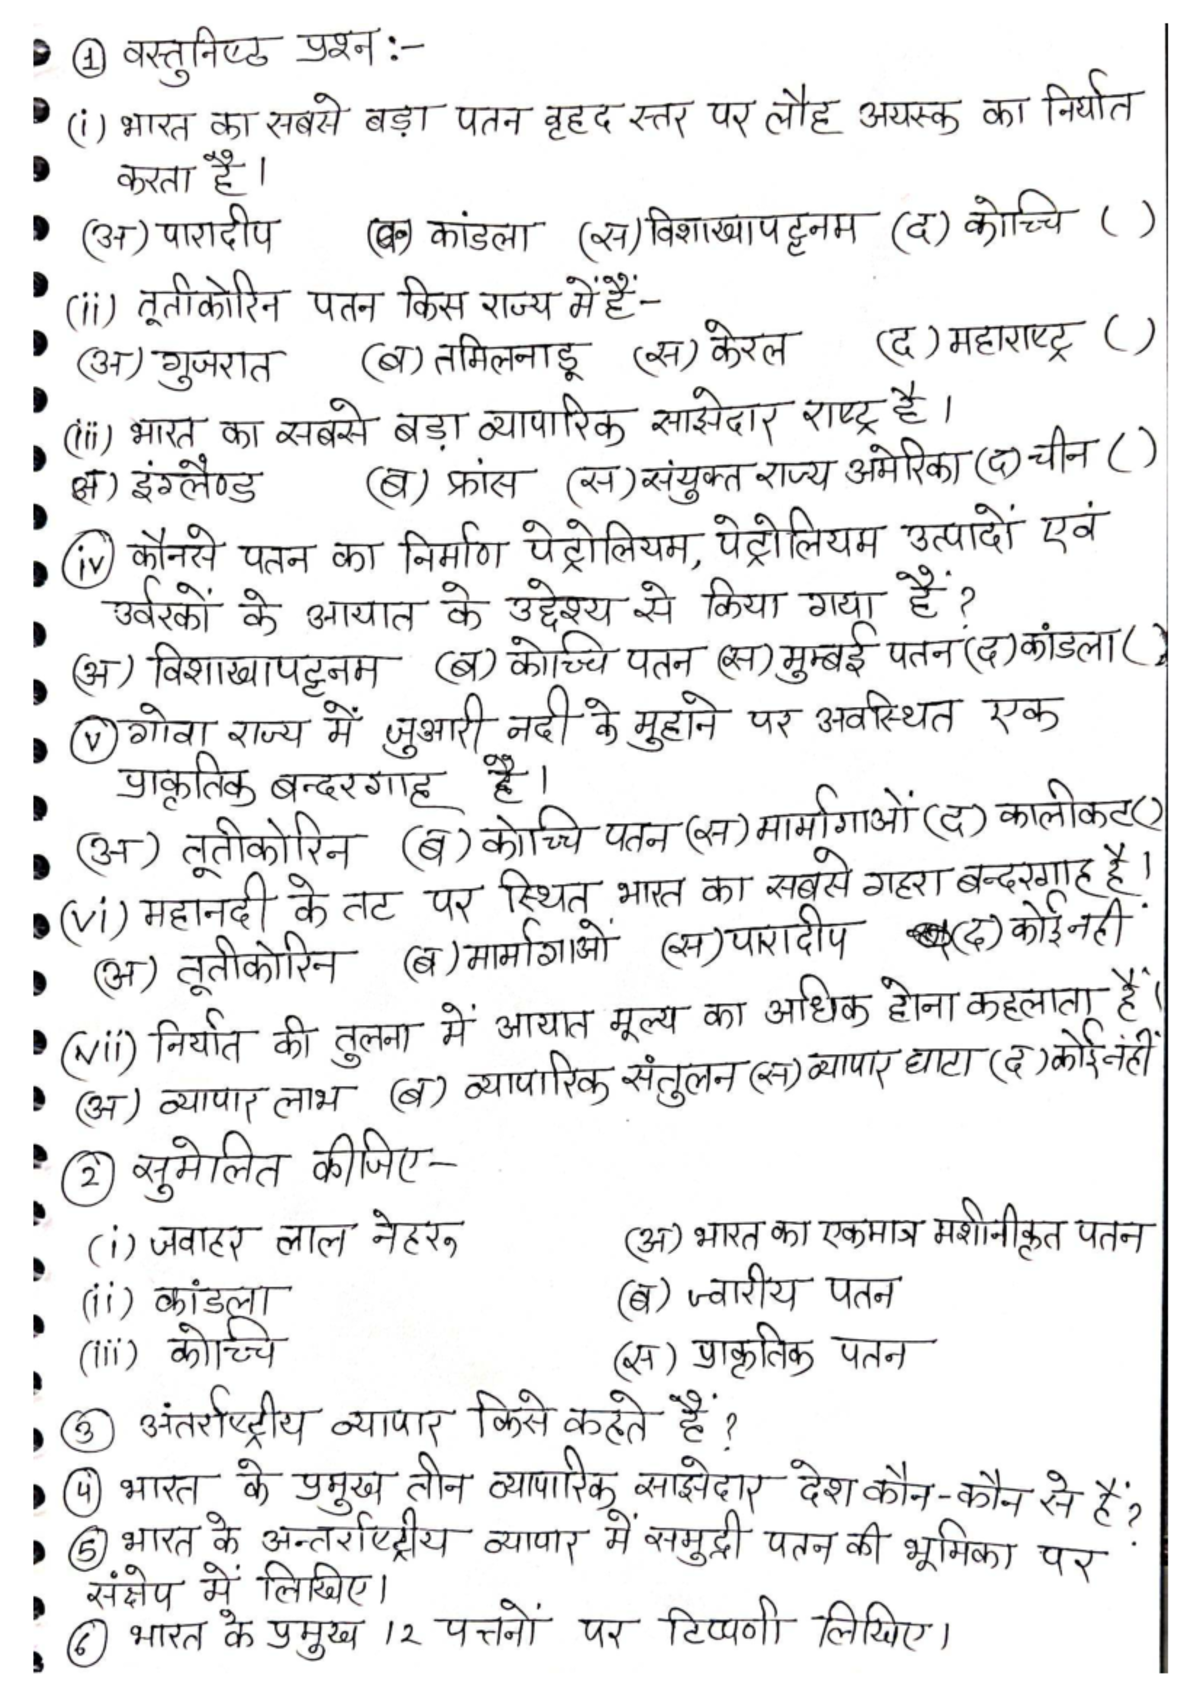 ① वस्तुनिष्ठ प्रश्न :-
(i) भारत का सबसे बड़ा पतन वृहद स्तर पर लौह अयस्क का निर्यात
करता है।
(अ) पारादीप (ब) कांडला (स) विशाखापट्टनम (द) कोच्चि ( )
(ii) तूतीकोरिन पतन किस राज्य में हैं-
(अ) गुजरात (ब) तमिलनाडू (स) केरल (द) महाराष्ट्र ( )
(iii) भारत का सबसे बड़ा व्यापारिक साझेदार राष्ट्र है।
अ) इंग्लैण्ड (ब) फ्रांस (स) संयुक्त राज्य अमेरिका (द) चीन ( )
(iv) कौनसे पतन का निर्माण पेट्रोलियम, पेट्रोलियम उत्पादों एवं
उर्वरकों के आयात के उद्देश्य से किया गया हैं?
(अ) विशाखापट्टनम (ब) कोच्चि पतन (स) मुम्बई पतन (द) कांडला ( )
(v) गोवा राज्य में जुआरी नदी के मुहाने पर अवस्थित एक
प्राकृतिक बन्दरगाह है।
(अ) तूतीकोरिन (ब) कोच्चि पतन (स) मार्मागाओं (द) कालीकट ( )
(vi) महानदी के तट पर स्थित भारत का सबसे गहरा बन्दरगाह है।
(अ) तूतीकोरिन (ब) मार्मागाओं (स) पारादीप (द) कोई नहीं
(vii) निर्यात की तुलना में आयात मूल्य का अधिक होना कहलाता हैं।
(अ) व्यापार लाभ (ब) व्यापारिक संतुलन (स) व्यापार घाटा (द) कोई नहीं
② सुमेलित कीजिए-
(i) जवाहर लाल नेहरू (अ) भारत का एकमात्र मशीनीकृत पतन
(ii) कांडला (ब) ज्वारीय पतन
(iii) कोच्चि (स) प्राकृतिक पतन
③ अंतर्राष्ट्रीय व्यापार किसे कहते हैं?
④ भारत के प्रमुख तीन व्यापारिक साझेदार देश कौन-कौन से हैं?
⑤ भारत के अन्तर्राष्ट्रीय व्यापार में समुद्री पतन की भूमिका पर
संक्षेप में लिखिए।
⑥ भारत के प्रमुख 12 पत्तनों पर टिप्पणी लिखिए।